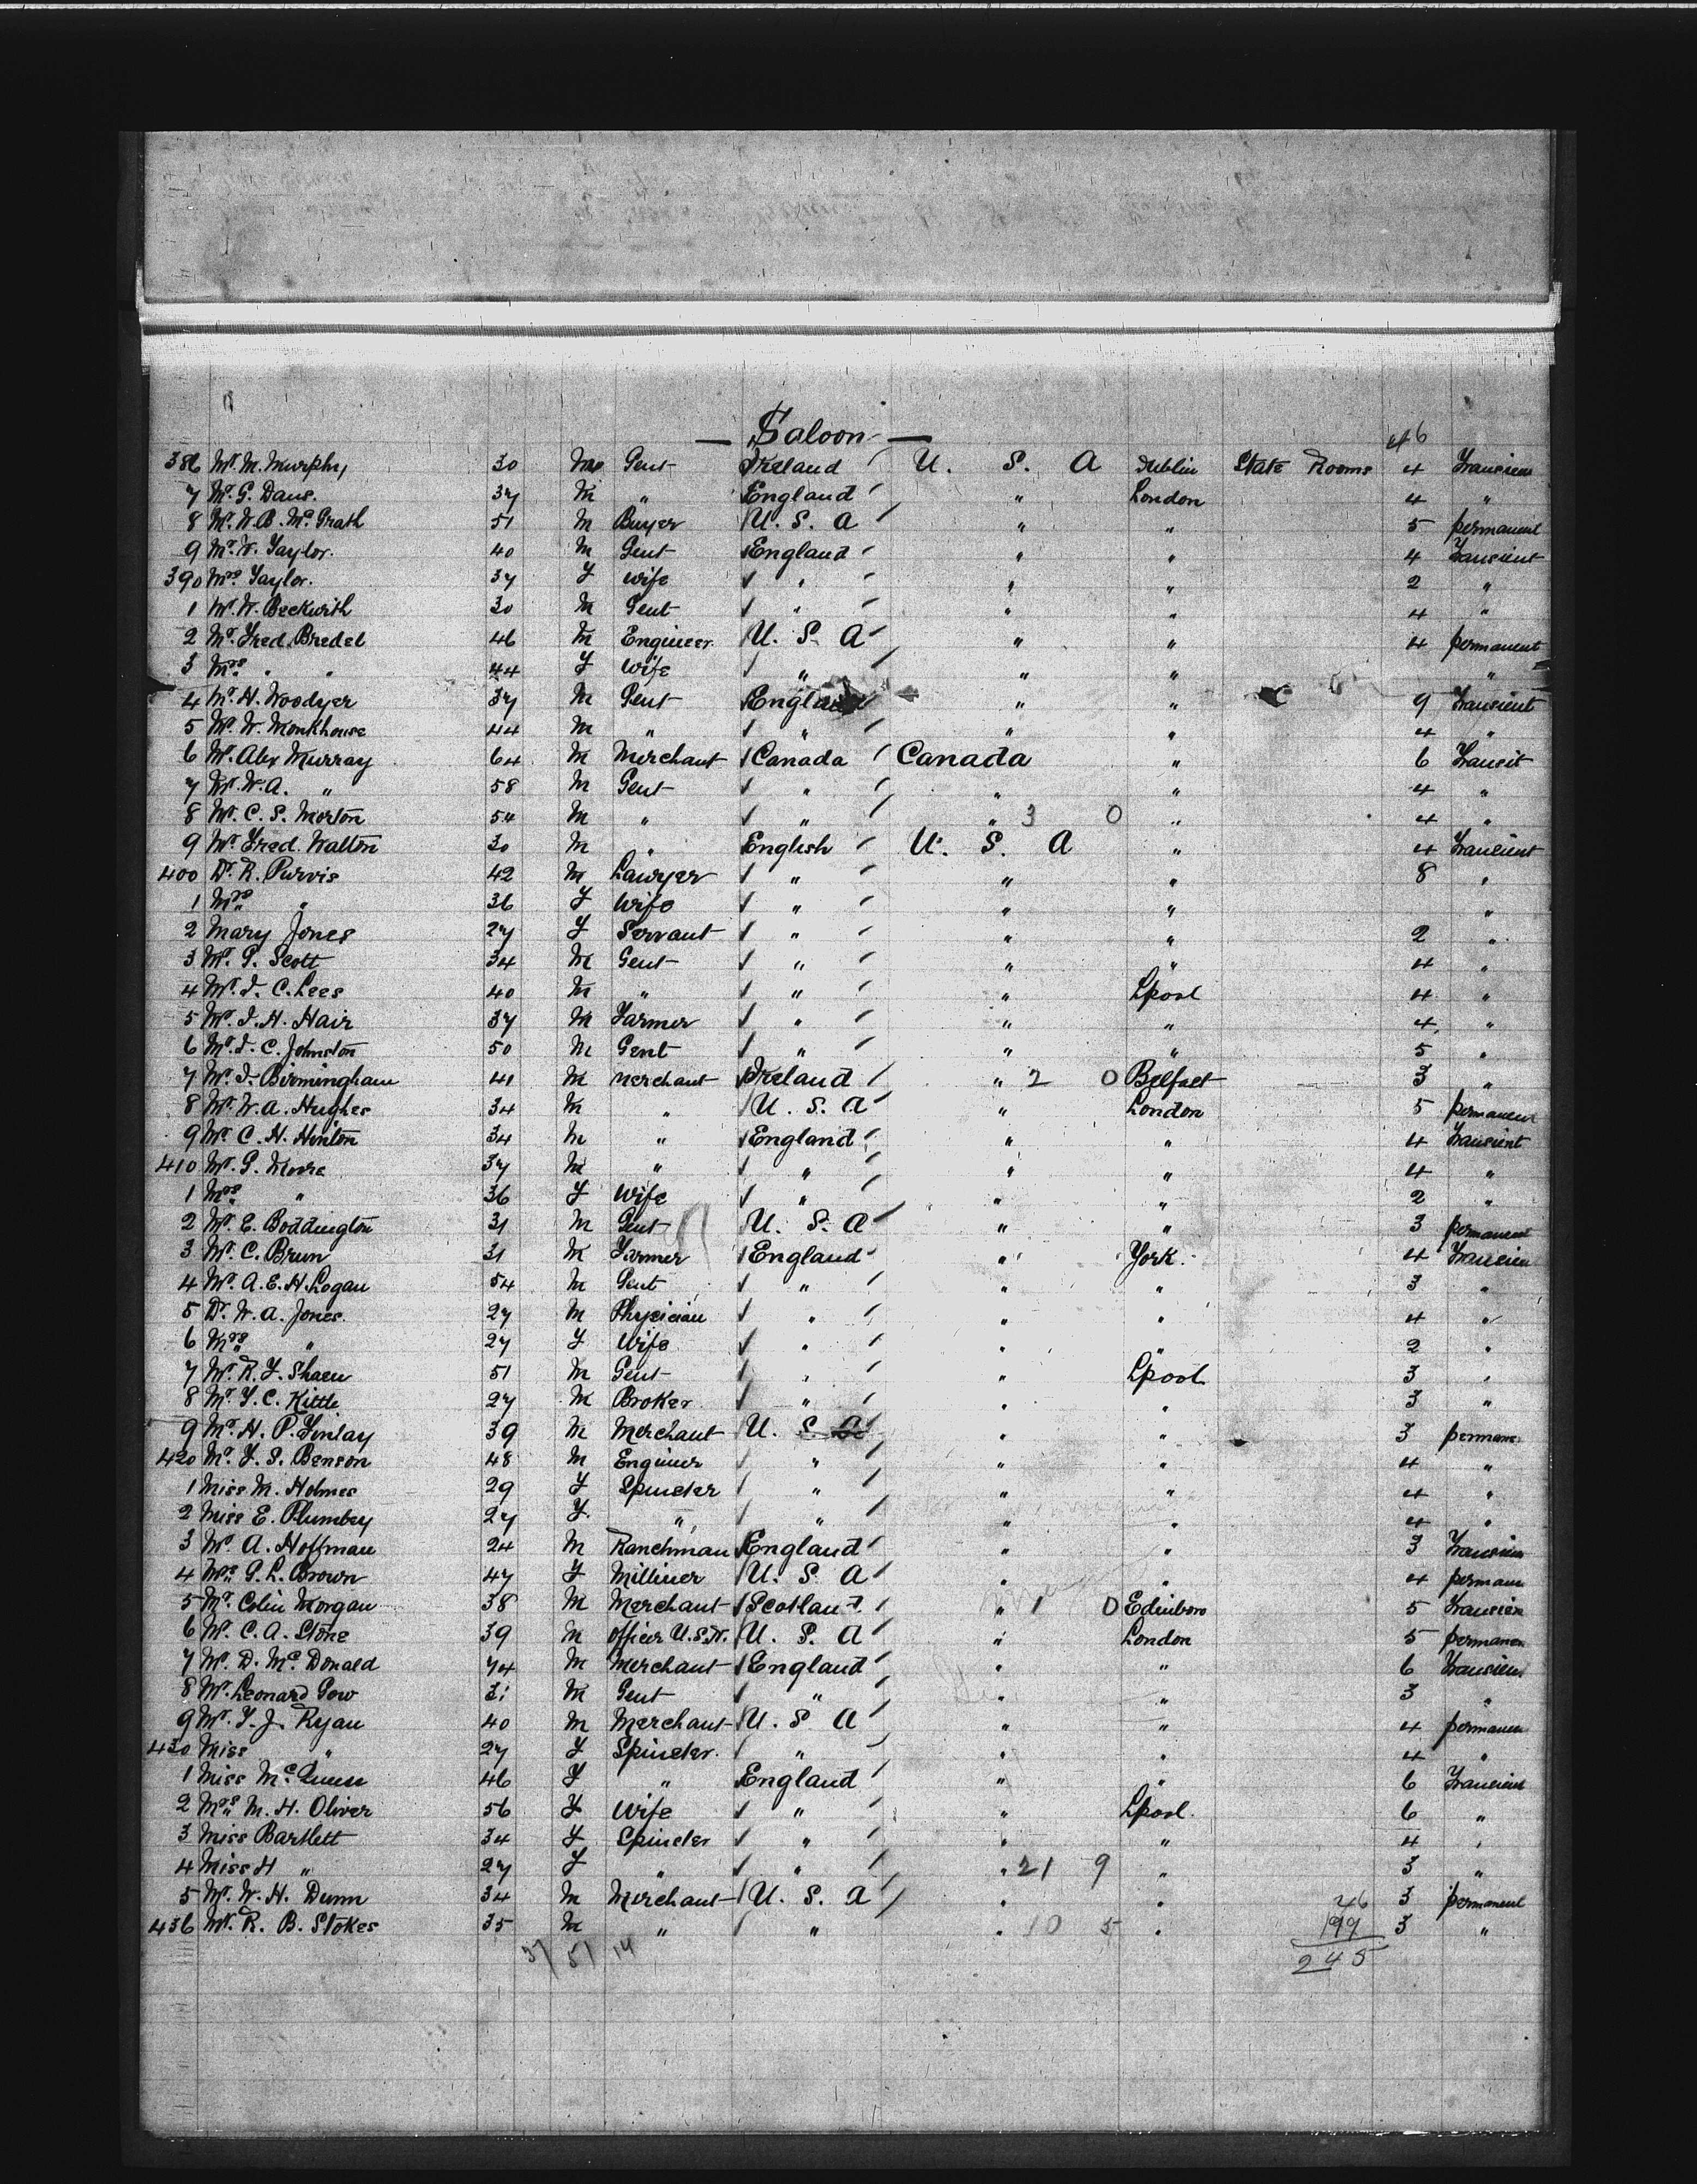 — Saloon —
46
386 Mr. M. Murphy 30 M Gent Ireland U. S. A Dublin State Rooms 4 Transient
7 Mr. G. Daus. 37 M " England " London 4 "
8 Mr. W. B. McGrath 51 M Buyer U. S. A " " 5 permanent
9 Mr. W. Taylor. 40 M Gent England " " 4 Transient
390 Mrs. Taylor. 37 F wife " " " 2 "
1 Mr. W. Beckwith 30 M Gent " " " 4 "
2 Mr. Fred. Bredel 46 M Engineer. U. S. A " " 4 permanent
3 Mrs. " " 44 F Wife " " " "
4 Mr. H. Woodyer 37 M Gent England " " 9 Transient
5 Mr. W. Monkhouse 44 M " " " " 4 "
6 Mr. Alex Murray 64 M Merchant Canada Canada " 6 Transit
7 Mr. W. A. " 58 M Gent " " " 4 "
8 Mr. C. S. Morton 54 M " " " 3 0 " 4 "
9 Mr. Fred. Walton 30 M " English U. S. A " 4 Transient
400 Dr. R. Purvis 42 M Lawyer " " " 8 "
1 Mrs. " 36 F Wife " " " "
2 Mary Jones 27 F Servant " " " 2 "
3 Mr. G. Scott 34 M Gent " " " 4 "
4 Mr. J. C. Lees 40 M " " " Lpool 4 "
5 Mr. J. H. Hair 37 M Farmer " " " 4 "
6 Mr. J. C. Johnston 50 M Gent " " " 5 "
7 Mr. J. Birmingham 41 M Merchant Ireland " 2 0 Belfast 3 "
8 Mr. W. A. Hughes 34 M " U. S. A " London 5 permanent
9 Mr. C. H. Hinton 34 M " England " " 4 Transient
410 Mr. G. Moore 37 M " " " " 4 "
1 Mrs. " 36 F Wife " " " 2 "
2 Mr. E. Boddington 31 M Gent U. S. A " " 3 permanent
3 Mr. C. Brun 31 M Farmer England " York. 4 Transien
4 Mr. A. E. H. Logan 54 M Gent " " " 3 "
5 Dr. W. A. Jones. 27 M Physician " " " 4 "
6 Mrs. " 27 F Wife " " " 2 "
7 Mr. R. F. Shaen 51 M Gent " " Lpool 3 "
8 Mr. F. C. Kittle 27 M Broker " " " 3 "
9 Mr. H. P. Finlay 39 M Merchant U. S. A " " 3 perman
420 Mr. F. S. Benson 48 M Engineer " " " 4 "
1 Miss M. Holmes 29 F Spinster " " " 4 "
2 Miss E. Plumbey 27 F. " " " " 4 "
3 Mr. A. Hoffman 24 M Ranchman England " " 3 Transien
4 Mrs. G. L. Brown 47 F Milliner U. S. A " " 4 perman
5 Mr. Colin Morgan 38 M Merchant Scotland. " 1 0 Edinboro 5 Transien
6 Mr. C. A. Stone 39 M officer U.S.N. U. S. A " London 5 permanen
7 Mr. D. McDonald 74 M Merchant England " " 6 Transien
8 Mr. Leonard Gow 31 M Gent " " " 3 "
9 Mr. T. J. Ryan 40 M Merchant U. S. A " " 4 permanen
430 Miss " 27 F Spinster. " " " 4 "
1 Miss McQueen 46 F " England " " 6 Transient
2 Mrs. M. H. Oliver 56 F Wife " " Lpool. 6 "
3 Miss Bartlett 34 F Spinster " " " 4 "
4 Miss H " 27 F " " " 21 9 " 3 "
5 Mr. W. H. Dunn 34 M Merchant U. S. A " " 3 permanent
436 Mr. R. B. Stokes 35 M " " " 10 5 " 3 "
46
199
245
37 51 14